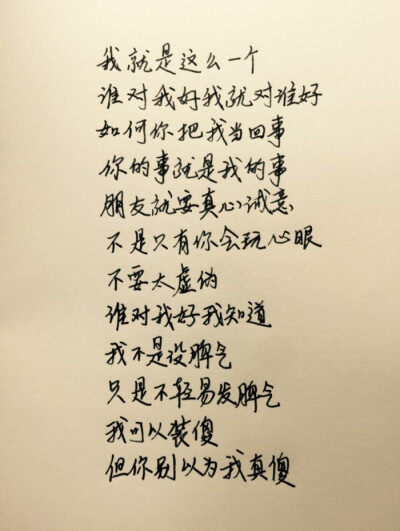 我就是这么一个
谁对我好我就对谁好
如何你把我当回事
你的事就是我的事
朋友就要真心诚意
不是只有你会玩心眼
不要太虚伪
谁对我好我知道
我不是没脾气
只是不轻易发脾气
我可以装傻
但你别以为我真傻